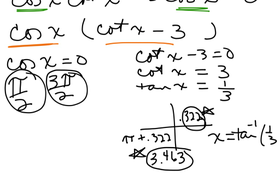 cos x ( cot x − 3 )
cos x = 0
π/2 3π/2
cot x − 3 = 0
cot x = 3
tan x = 1/3
.322
π + .322
3.463
x = tan⁻¹ ( 1/3